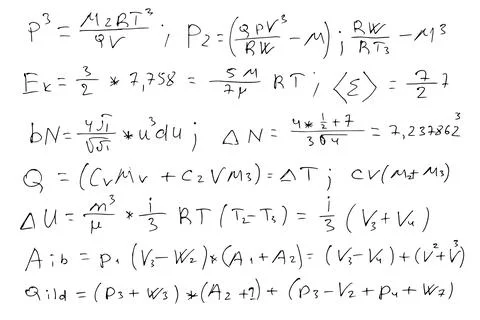 P³ = M₂RT³/QV ; P₂ = (QPV³/RW − M) ; RW/RT₃ − M³
Eₖ = 3/2 * 7,758 = 5M/7μ RT ; ⟨Σ⟩ = 7/2 7
bN = 4√1/√√1 * u³du ; ΔN = (4*½+7)/(3√4) = 7,237862³
Q = (CᵥMᵥ + C₂VM₃) = ΔT ; CV(M₂+M₃)
ΔU = m³/μ * i/3 RT(T₂−T₃) = i/3 (V₃+V₄)
Aib = P₁(V₃−W₂)*(A₁+A₂) = (V₃−V₄)+(V²+V³)
Qild = (P₃+W₃)*(A₂+2) + (P₃−V₂+P₄+W₇)